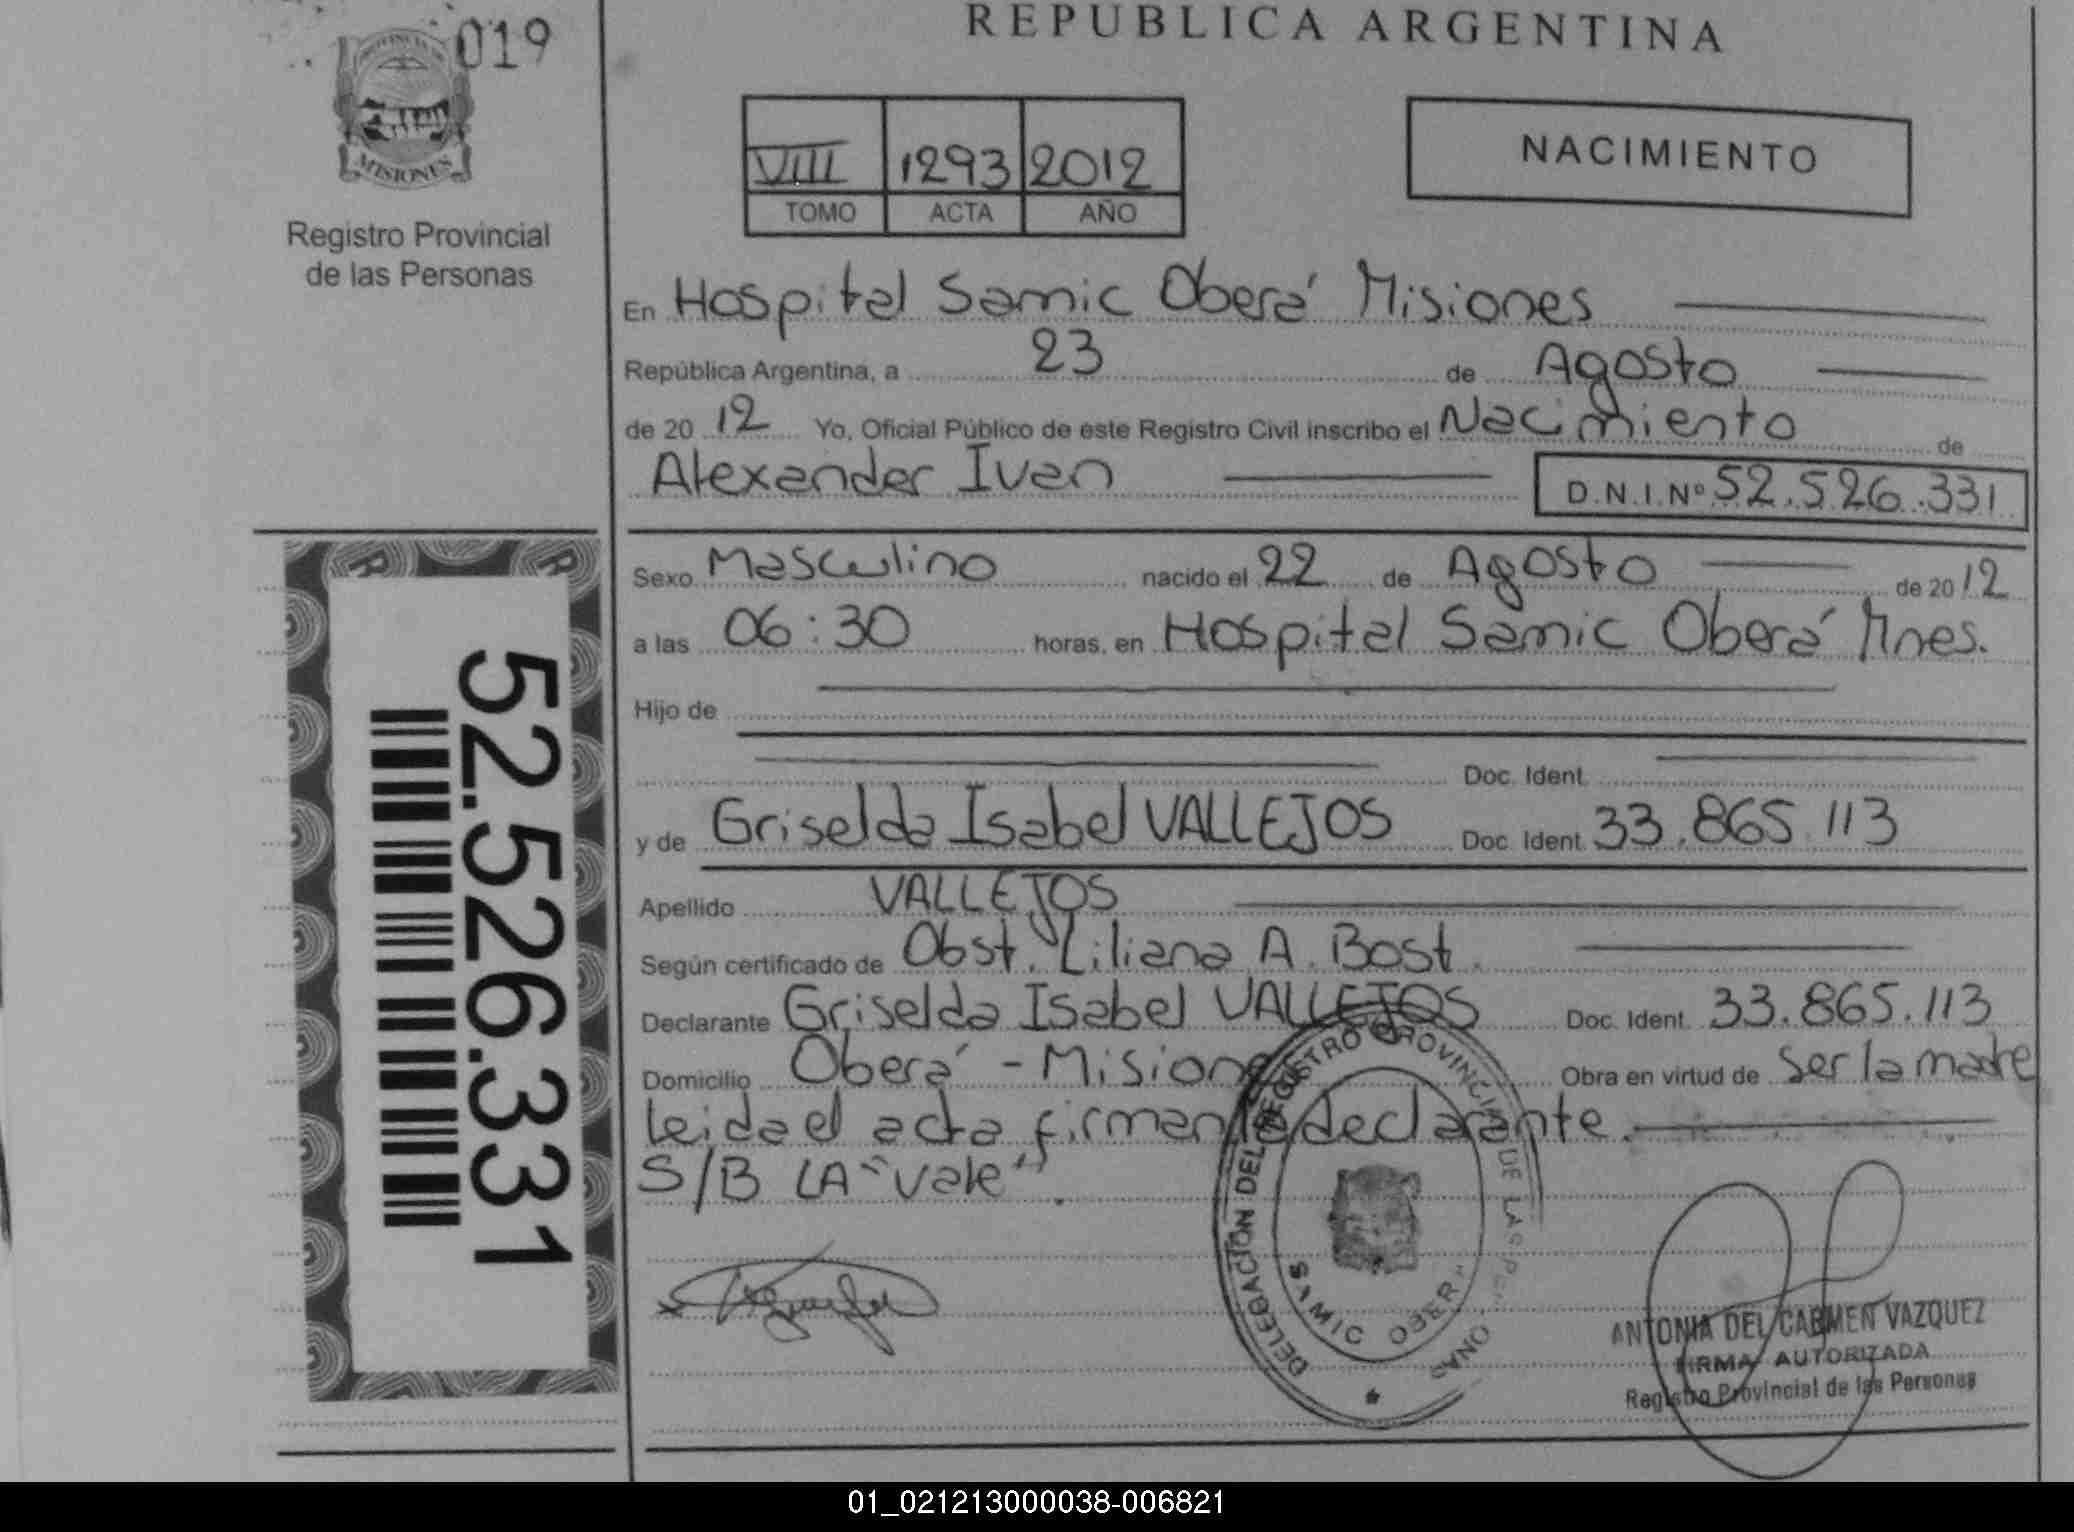 019
PROVINCIA DE
MISIONES
Registro Provincial
de las Personas
52.526.331
REPUBLICA ARGENTINA
VIII 1293 2012
TOMO ACTA AÑO
NACIMIENTO
En Hospital Samic Oberá Misiones
República Argentina, a 23 de Agosto
de 20 12 Yo, Oficial Público de este Registro Civil inscribo el Nacimiento de
Alexander Ivan D.N.I.Nº 52.526.331
Sexo Masculino nacido el 22 de Agosto de 20 12
a las 06:30 horas, en Hospital Samic Oberá Mnes.
Hijo de
Doc. Ident.
y de Griselda Isabel VALLEJOS Doc. Ident. 33.865.113
Apellido VALLEJOS
Según certificado de Obst. Liliana A. Bost.
Declarante Griselda Isabel VALLEJOS Doc. Ident. 33.865.113
Domicilio Oberá - Misiones Obra en virtud de ser la madre
Leida el acta firman la declarante.
S/B LA "vale".
DELEGACIÓN DEL REGISTRO PROVINCIAL DE LAS PERSONAS
SAMIC OBERÁ
ANTONIA DEL CARMEN VAZQUEZ
FIRMA AUTORIZADA
Registro Provincial de las Personas
01_021213000038-006821